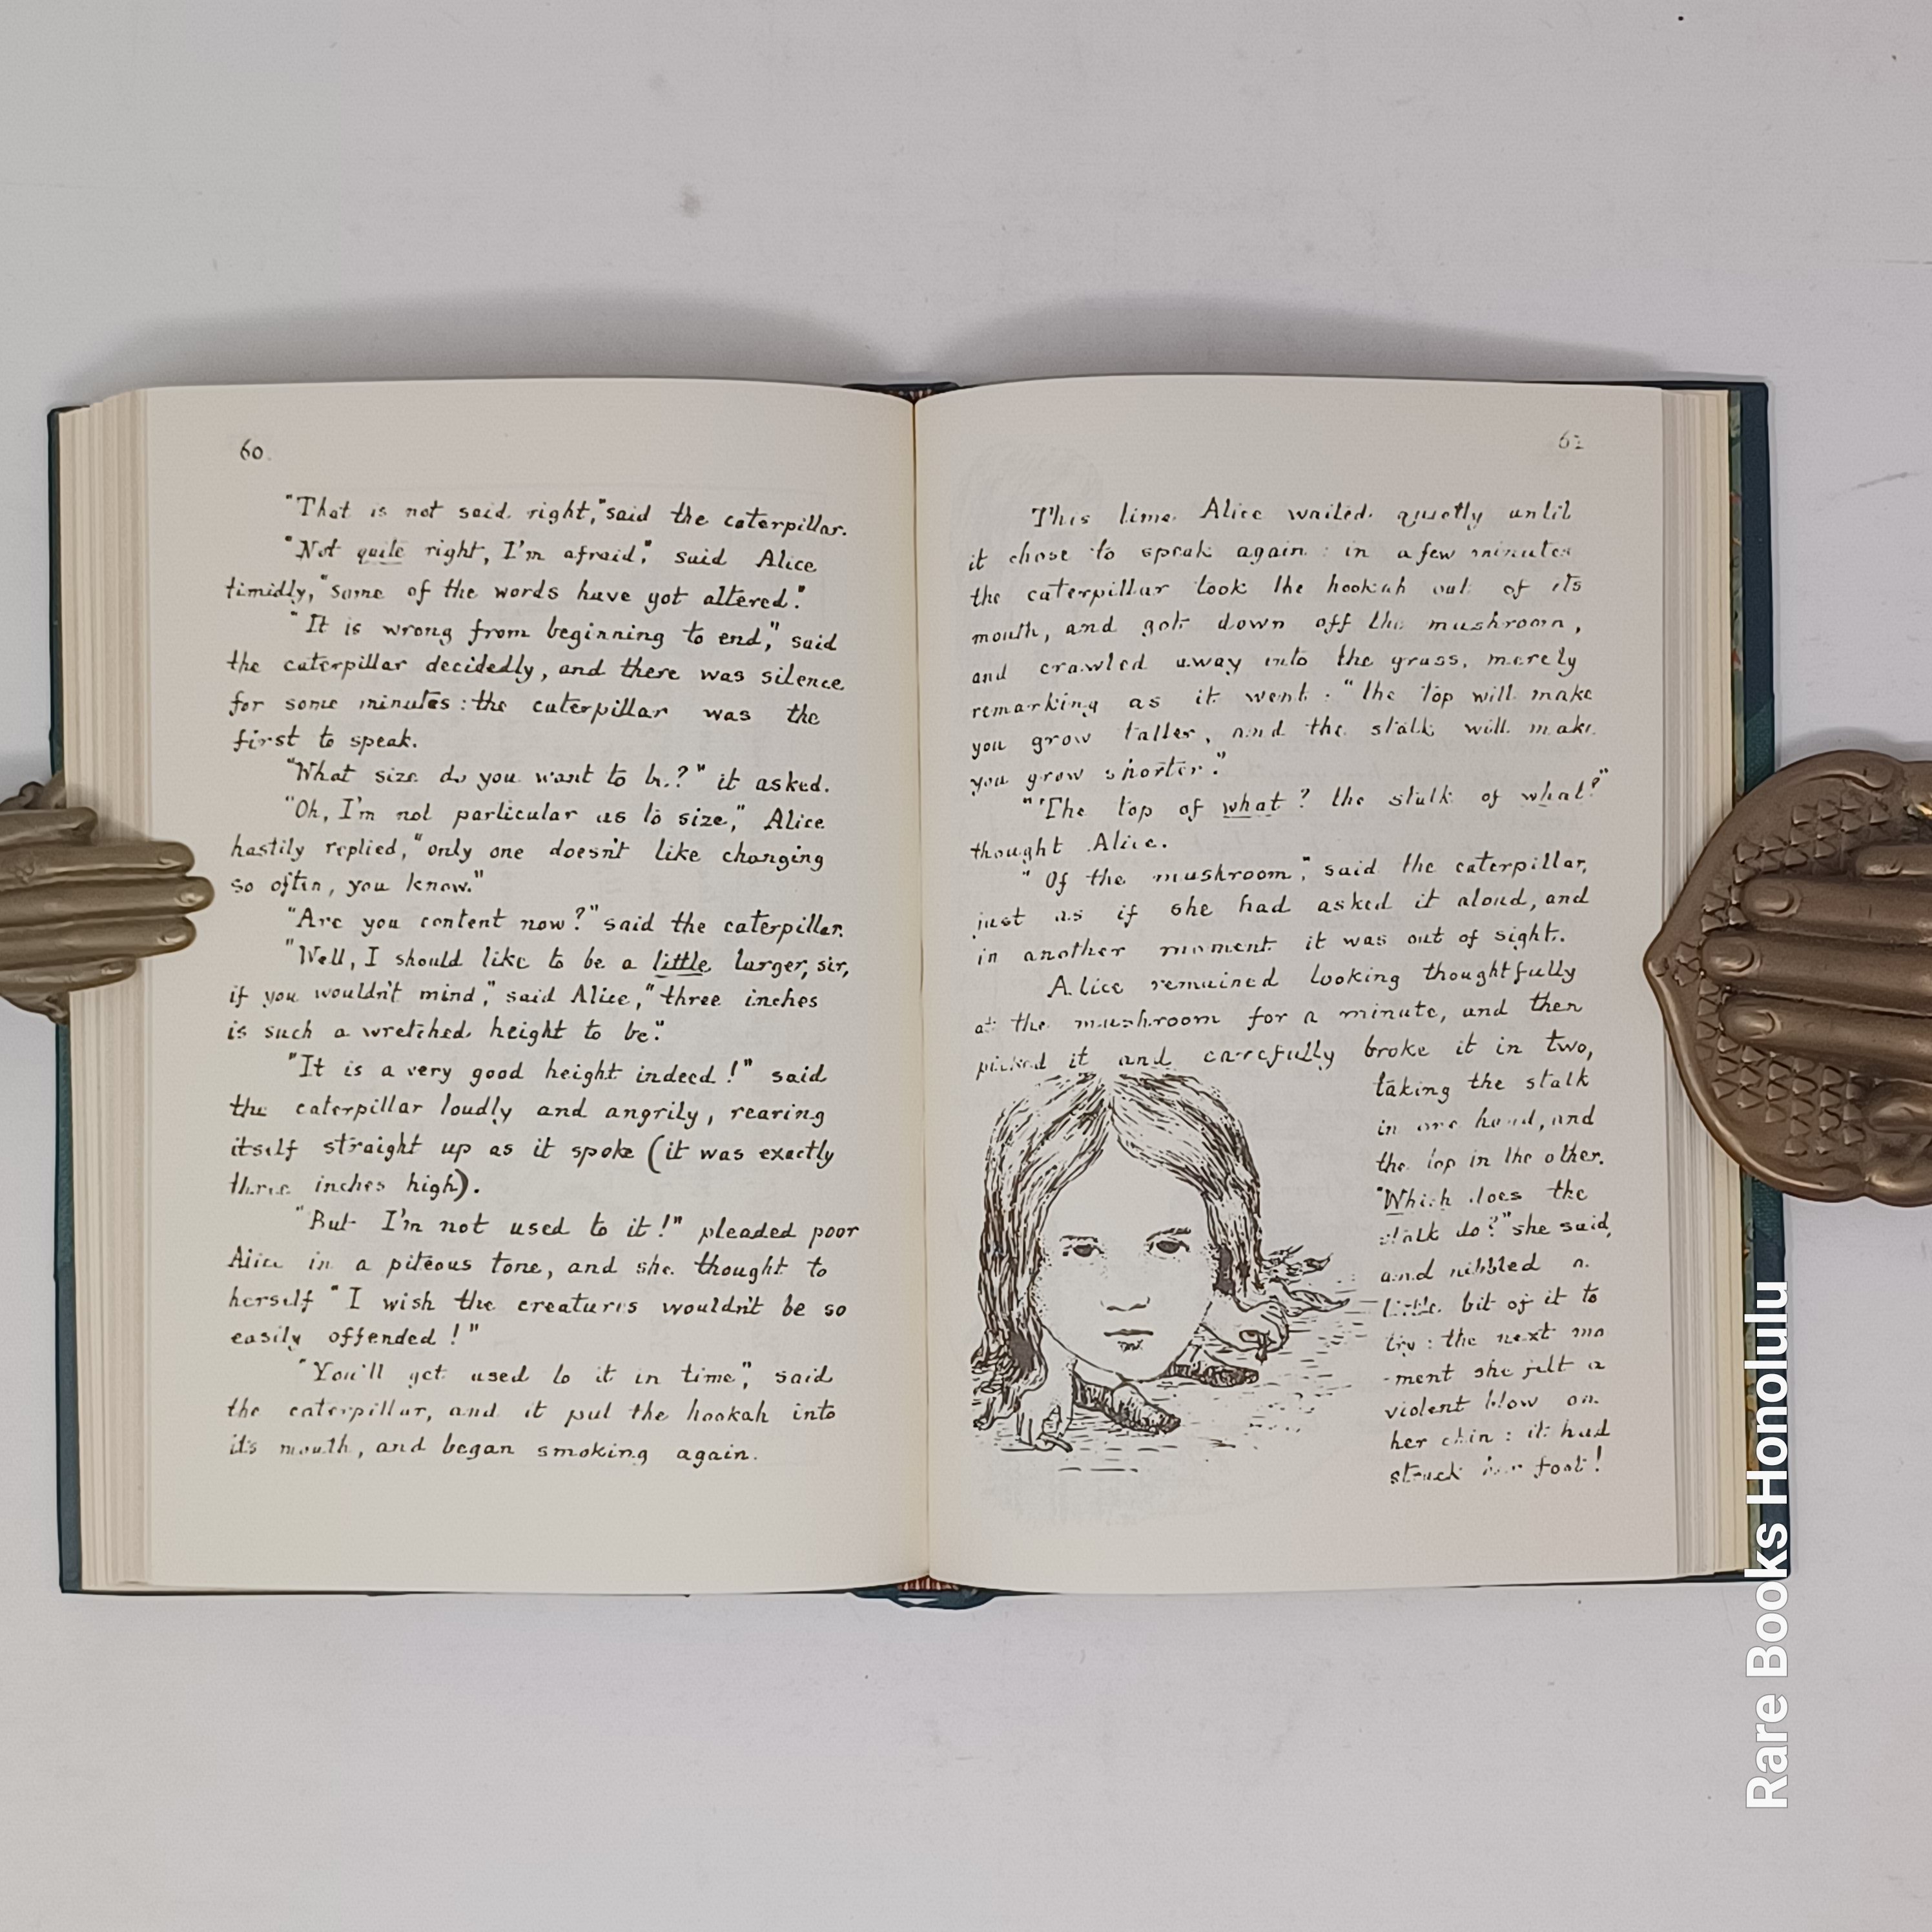 60.
"That is not said right," said the caterpillar.
"Not quite right, I'm afraid," said Alice
timidly, "some of the words have got altered."
"It is wrong from beginning to end," said
the caterpillar decidedly, and there was silence
for some minutes: the caterpillar was the
first to speak.
"What size do you want to be?" it asked.
"Oh, I'm not particular as to size," Alice
hastily replied, "only one doesn't like changing
so often, you know."
"Are you content now?" said the caterpillar.
"Well, I should like to be a little larger, sir,
if you wouldn't mind," said Alice, "three inches
is such a wretched height to be."
"It is a very good height indeed!" said
the caterpillar loudly and angrily, rearing
itself straight up as it spoke (it was exactly
three inches high).
"But I'm not used to it!" pleaded poor
Alice in a piteous tone, and she thought to
herself "I wish the creatures wouldn't be so
easily offended!"
"You'll get used to it in time," said
the caterpillar, and it put the hookah into
its mouth, and began smoking again.
This time Alice waited quietly until
it chose to speak again: in a few minutes
the caterpillar took the hookah out of its
mouth, and got down off the mushroom,
and crawled away into the grass, merely
remarking as it went: "the top will make
you grow taller, and the stalk will make
you grow shorter."
"The top of what? the stalk of what?"
thought Alice.
"Of the mushroom," said the caterpillar,
just as if she had asked it aloud, and
in another moment it was out of sight.
Alice remained looking thoughtfully
at the mushroom for a minute, and then
picked it and carefully broke it in two,
taking the stalk
in one hand, and
the top in the other.
"Which does the
stalk do?" she said,
and nibbled a
little bit of it to
try: the next mo
-ment she felt a
violent blow on
her chin: it had
struck her foot!
Rare Books Honolulu